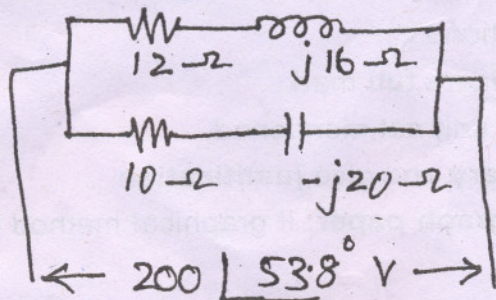 12 Ω j16 Ω
10 Ω j20 Ω
200 ∠53.8° V